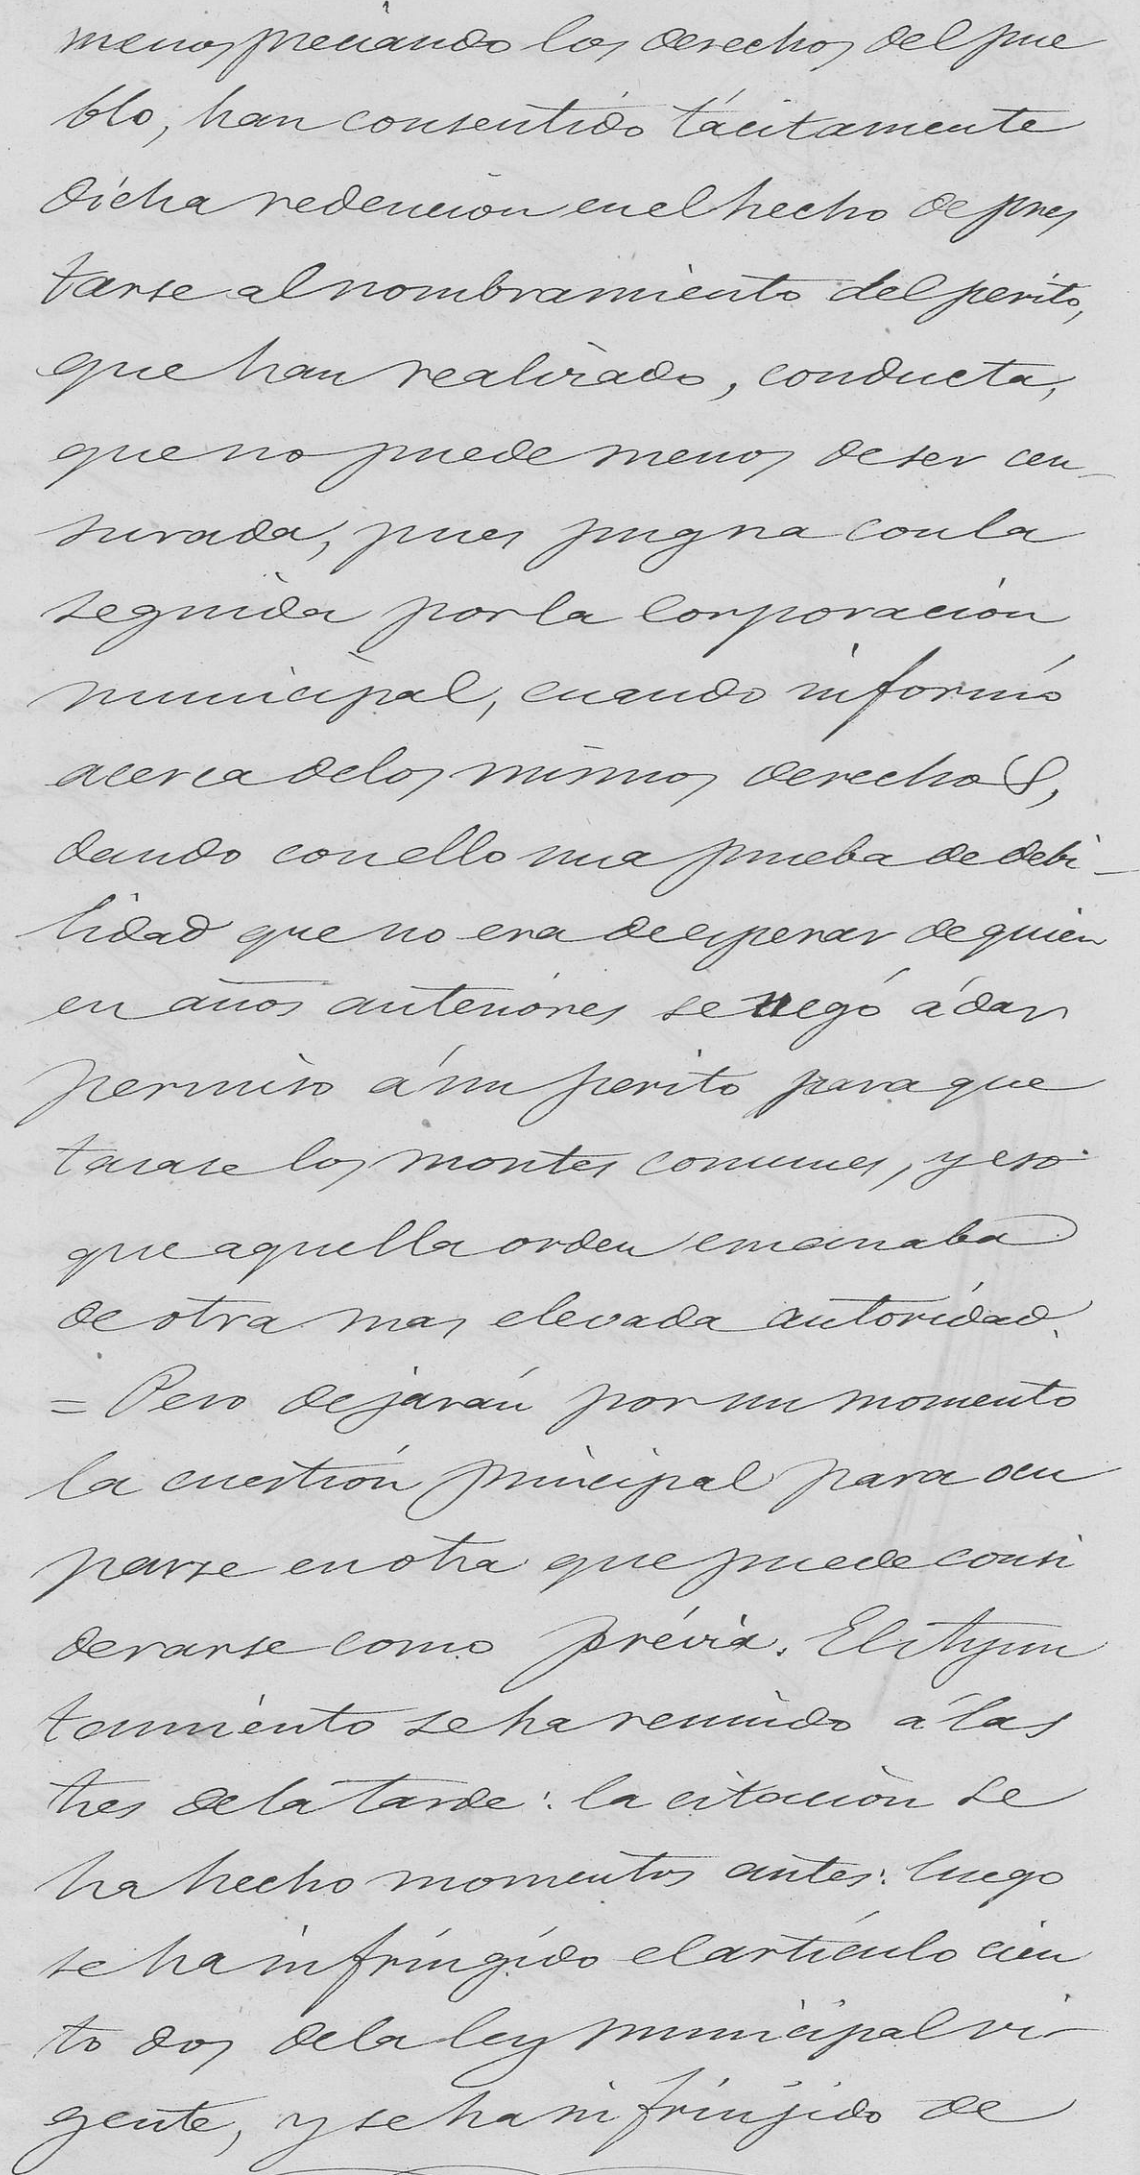 menospreciando los derechos del pue
blo, han consentido tácitamente
dicha redención en el hecho de pres
tarse al nombramiento del perito,
que han realizado, conducta,
que no puede menos de ser cen-
surada, pues pugna con la
seguida por la Corporación
municipal, cuando informó
acerca de los mismos derechos,
dando con ello una prueba de debi-
lidad que no era de esperar de quien
en años anteriores se negó á dar
permiso á un perito para que
tasase los montes comunes, y eso
que aquella orden emanaba
de otra mas elevada autoridad.
= Pero dejarán por un momento
la cuestión principal para ocu
parse en otra que puede consi
derarse como prévia. El Ayun
tamiento se ha reunido á las
tres de la tarde: la citación se
ha hecho momentos antes: luego
se ha infringido el artículo cien
to dos de la ley municipal vi-
gente, y se ha infrinjido de